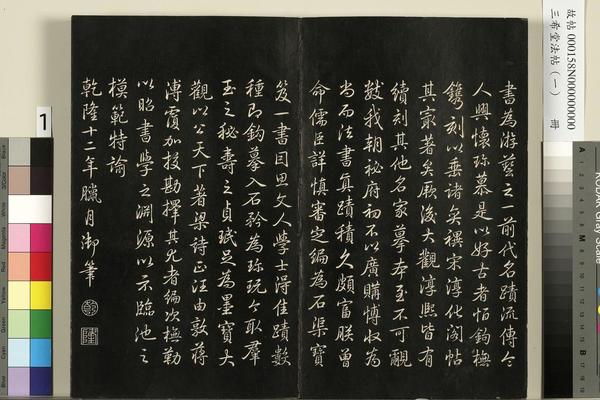 書為游藝之一前代名蹟流傳令
人興懷珍慕是以好古者恆鉤橅
鐫刻以垂諸奕禩宋淳化閣帖
其最著矣厥後大觀淳熙皆有
續刻其他名家摹本至不可觀
縷我朝秘府初不以廣購博收為
尚而法書真蹟積久頗富朕曾
命儒臣詳慎審定編為石渠寶
笈一書因思文人學士得佳蹟數
種即鉤摹入石矜為珍玩今取群
玉之秘壽之貞珉足為墨寶大
觀以公天下著梁詩正汪由敦蔣
溥覆加校勘擇其尤者編次橅勒
以昭書學之淵源以示臨池之
模範特諭
乾隆十二年臘月御筆
乾
隆
故帖 000158N000000000
三希堂法帖(一) 冊
1
KODAK Gray Scale
A
M
B